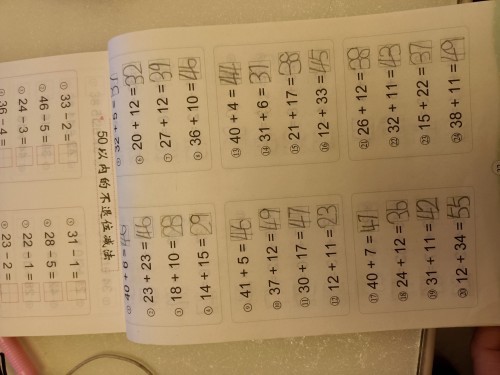 ① 40 + 6 = 46
② 23 + 23 = 46
③ 18 + 10 = 28
④ 14 + 15 = 29
⑤ 32 + 5 = 37
⑥ 20 + 12 = 32
⑦ 27 + 12 = 39
⑧ 36 + 10 = 46
⑨ 41 + 5 = 46
⑩ 37 + 12 = 49
⑪ 30 + 17 = 47
⑫ 12 + 11 = 23
⑬ 40 + 4 = 44
⑭ 31 + 6 = 37
⑮ 21 + 17 = 38
⑯ 12 + 33 = 45
⑰ 40 + 7 = 47
⑱ 24 + 12 = 36
⑲ 31 + 11 = 42
⑳ 12 + 34 = 55
㉑ 26 + 12 = 38
㉒ 32 + 11 = 43
㉓ 15 + 22 = 37
㉔ 38 + 11 = 49
50以内的不退位减法
33 − 2 =
46 − 5 =
24 − 3 =
36 − 4 =
31 − 1 =
28 − 5 =
22 − 1 =
23 − 2 =